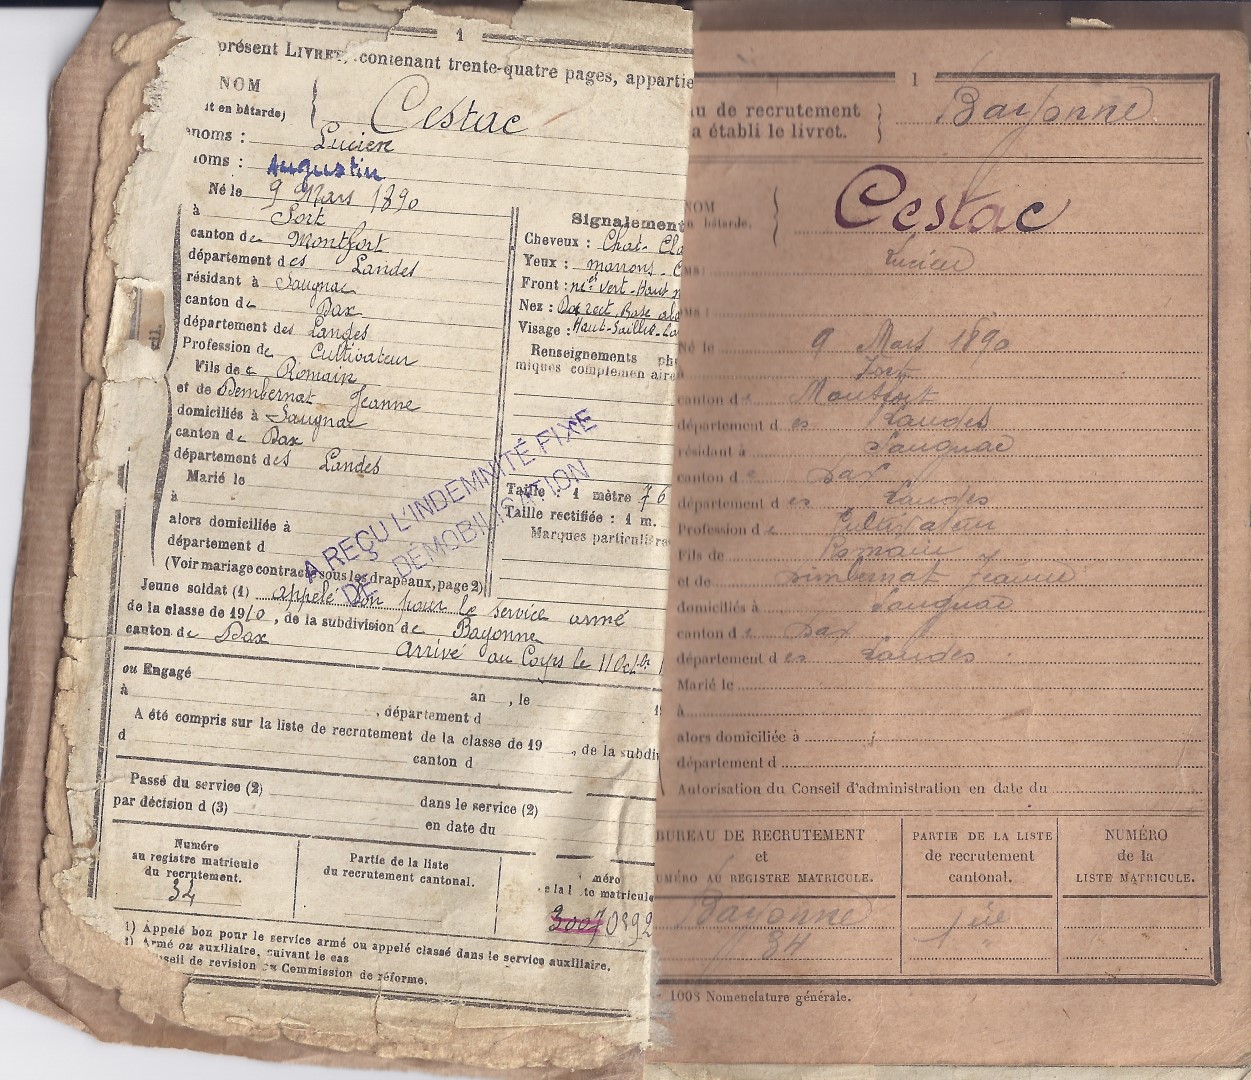 1
présent LIVRET, contenant trente-quatre pages, appartie
NOM
it en bâtarde)
Cestac
noms : Lucien
noms : Augustin
Né le 9 Mars 1890
à Sort
canton de Montfort
département des Landes
résidant à Saugnac
canton de Dax
département des Landes
Profession de Cultivateur
Fils de Romain
et de Dembernat Jeanne
domiciliés à Saugnac
canton de Dax
département des Landes
Marié le
à
alors domiciliée à
département d
(Voir mariage contracté sous les drapeaux, page 2)
Signalement
Cheveux : Chat. Cla
Yeux : marrons
Front : Vert. Haut
Nez : rect. Base
Visage : Haut. Saill.
Renseignements ph
miques complémentaire
Taille 1 mètre 76
Taille rectifiée : 1 m.
Marques particulières
A REÇU L'INDEMNITÉ FIXE
DE DÉMOBILISATION
Jeune soldat (1) appelé bon pour le service armé
de la classe de 1910, de la subdivision de Bayonne
canton de Dax Arrivé au Corps le 11 Octbre 1
ou Engagé
à an , le 19
, département d
A été compris sur la liste de recrutement de la classe de 19 , de la subdiv
d canton d
Passé du service (2) dans le service (2)
par décision d (3) en date du
Numéro
au registre matricule
du recrutement.
34
Partie de la liste
du recrutement cantonal.
méro
e la l te matricule
3007 0392
1) Appelé bon pour le service armé ou appelé classé dans le service auxiliaire.
2) Armé ou auxiliaire, suivant le cas
seil de revision ou Commission de réforme.
cil.
1
u de recrutement
a établi le livret.
Bayonne
NOM
n bâtarde.
Cestac
Lucien
Né le 9 Mars 1890
Sort
canton de Montfort
département des Landes
résidant à Saugnac
canton de Dax
département des Landes
Profession de Cultivateur
Fils de Romain
et de Dimbernat Jeanne
domiciliés à Saugnac
canton de Dax
département des Landes
Marié le
à
alors domiciliée à
département d
Autorisation du Conseil d'administration en date du
BUREAU DE RECRUTEMENT
et
NUMÉRO AU REGISTRE MATRICULE.
Bayonne
34
PARTIE DE LA LISTE
de recrutement
cantonal.
1ère
"
NUMÉRO
de la
LISTE MATRICULE.
1003 Nomenclature générale.